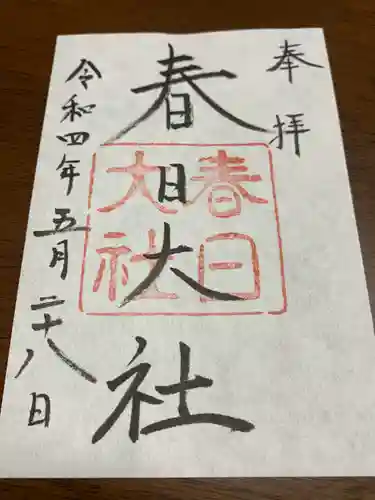 奉拝
春日大社
春日
大社
令和四年五月二十八日